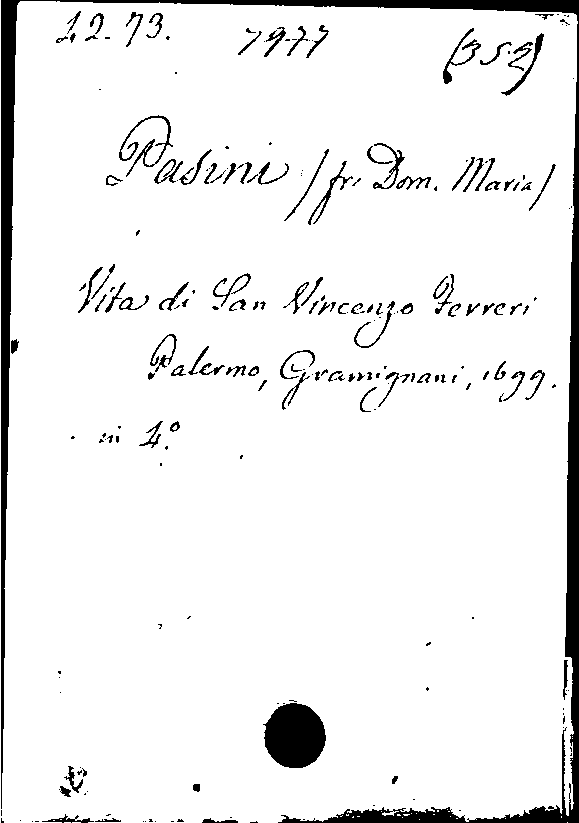 12.73. 7977 (352)
Pasini /fr: Dom. Maria/
Vita di San Vincenzo Ferreri
Palermo, Gramignani, 1699.
in 4.º